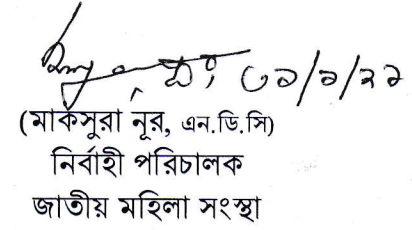 ৩১/১/২২
(মাকসুরা নূর, এন.ডি.সি)
নির্বাহী পরিচালক
জাতীয় মহিলা সংস্থা